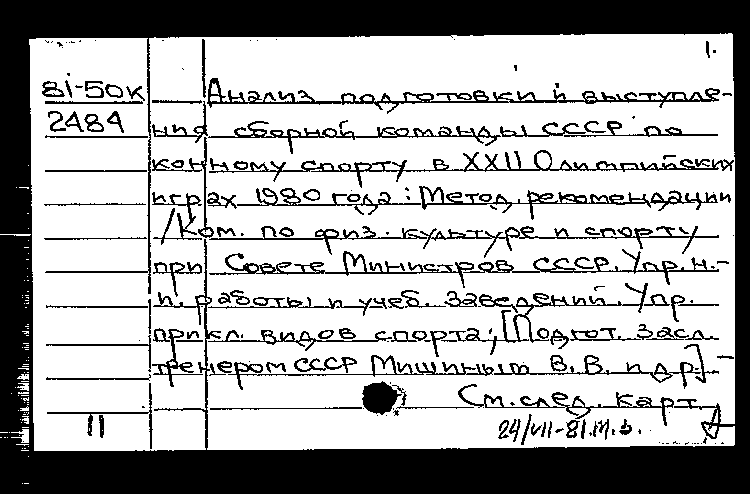 1.
81-50к Анализ подготовки и выступле-
2484 ния сборной команды СССР по
конному спорту в XXII Олимпийских
играх 1980 года: Метод. рекомендации
/Ком. по физ. культуре и спорту
при Совете Министров СССР. Упр. н.-
и. работы и учеб. заведений. Упр.
прикл. видов спорта; [Подгот. засл.
тренером СССР Мишиным В. В. и др.] –
См. след. карт.
11 24/VII-81.